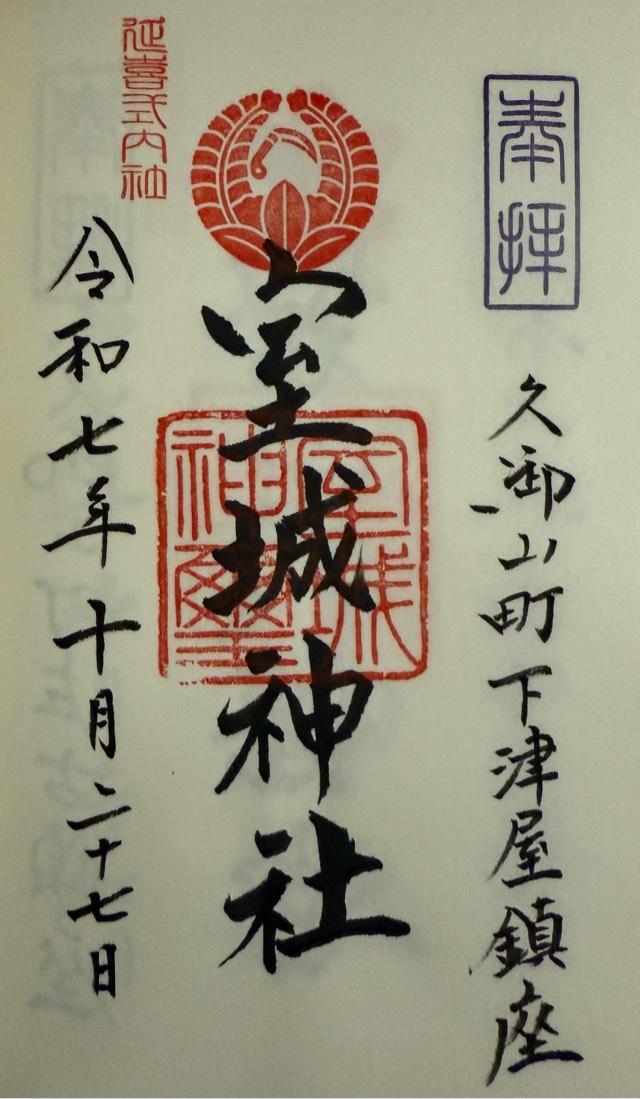 奉拝
久御山町下津屋鎮座
室城神社
室城神璽
延喜式内社
令和七年十月二十七日